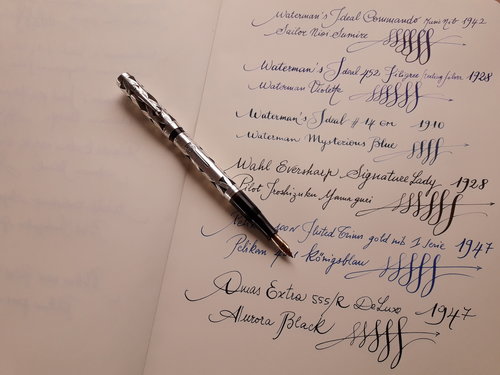 Waterman's Ideal Commando Mani Nib 1942
Sailor Nioi Sumire
Waterman's Ideal 452 Filigree Sterling Silver 1928
Waterman Violette
Waterman's Ideal #14 1910
Waterman Mysterious Blue
Wahl Eversharp Signature Lady 1928
Pilot Iroshizuku Yama guri
gold nib 1 Serie 1947
Pelikan Königsblau
Omas Extra 555/R DeLuxe 1947
Aurora Black